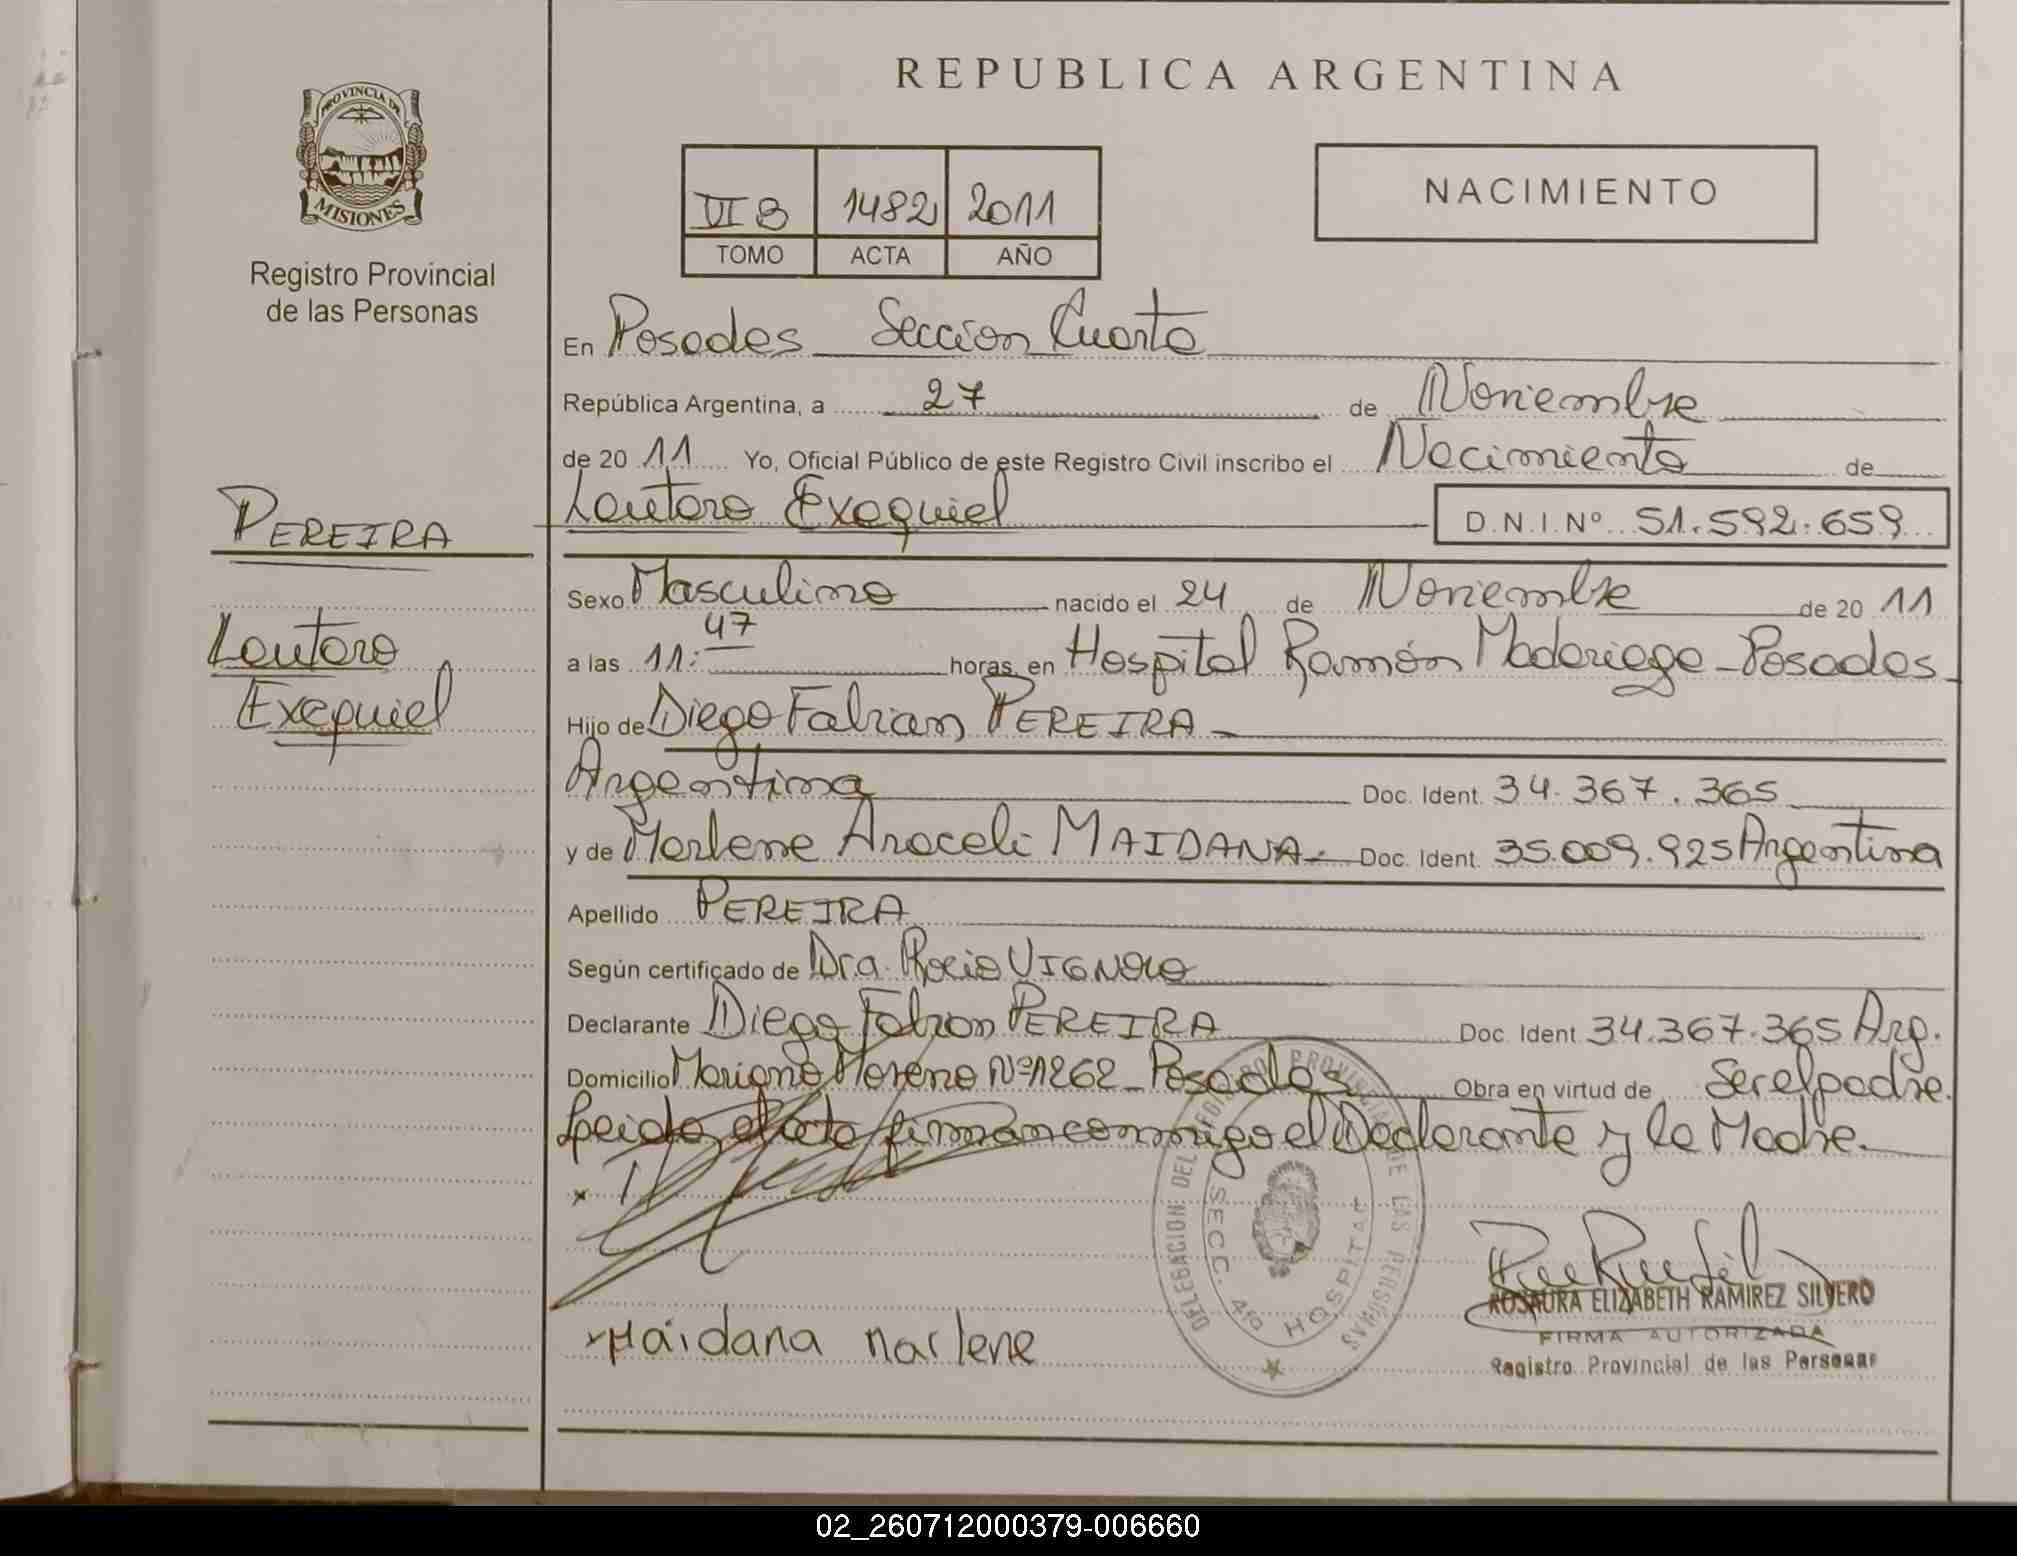 REPUBLICA ARGENTINA
PROVINCIA DE
MISIONES
Registro Provincial
de las Personas
VI B 1482 2011
TOMO ACTA AÑO
NACIMIENTO
En Posadas Sección Cuarta
República Argentina, a 27 de Noviembre
de 20 11 Yo, Oficial Público de este Registro Civil inscribo el Nacimiento de
Lautaro Exequiel D.N.I.Nº 51.592.659
PEREIRA
Lautaro
Exequiel
Sexo Masculino nacido el 24 de Noviembre de 20 11
a las 11:47 horas, en Hospital Ramón Madariaga - Posadas
Hijo de Diego Fabian PEREIRA
Argentina Doc. Ident. 34.367.365
y de Marlene Araceli MAIDANA.- Doc. Ident. 35.009.925 Argentina
Apellido PEREIRA
Según certificado de Dra. Rocio VIGNOLO
Declarante Diego Fabian PEREIRA Doc. Ident 34.367.365 Arg.
Domicilio Mariano Moreno Nº 1262 - Posadas Obra en virtud de Ser el padre.
Leida el acta firman conmigo el Declarante y la Madre.
DELEGACION DEL REGISTRO PROVINCIAL DE LAS PERSONAS
SECC. 4ta HOSPITAL
x Maidana Marlene
ROSAURA ELIZABETH RAMIREZ SILVERO
FIRMA AUTORIZADA
Registro Provincial de las Personas
02_260712000379-006660